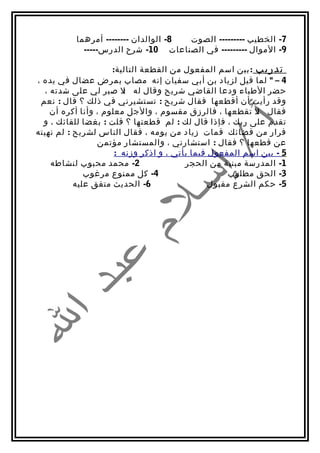 7- الخطيب --------- الصوت 8- الوالدان -------- أمرهما
9- الأموال --------- في الصناعات 10- شرح الدرس-----
تدريب : بين اسم المفعول من القطعة التالية:
4 – " لما قيل لزياد بن أبي سفيان إنه مصاب بمرض عضال في يده ،
حضر الأطباء ودعا القاضي شريح وقال له لا صبر لي على شدته ،
وقد رأيت أن أقطعها فقال شريح : تستشيرني في ذلك ؟ قال : نعم
فقال لا تقطعها ، فالرزق مقسوم ، والأجل معلوم ، وأنا أكره أن
تقدم على ربك ، فإذا قال لك : لم قطعتها ؟ قلت : بغضا للقائك ، و
فرار من قضائك فمات زياد من يومه ، فقال الناس لشريح : لم نهيته
عن قطعها ؟ فقال : استشارني ، والمستشار مؤتمن
5 - بين اسم المفعول فيما يأتي ، و اذكر وزنه :
1- المدرسة مبنية من الحجر 2- محمد محبوب لنشاطه
3- الحق مطلوب 4- كل ممنوع مرغوب
5- حكم الشرع مقبول 6- الحديث متفق عليه
عبد الله